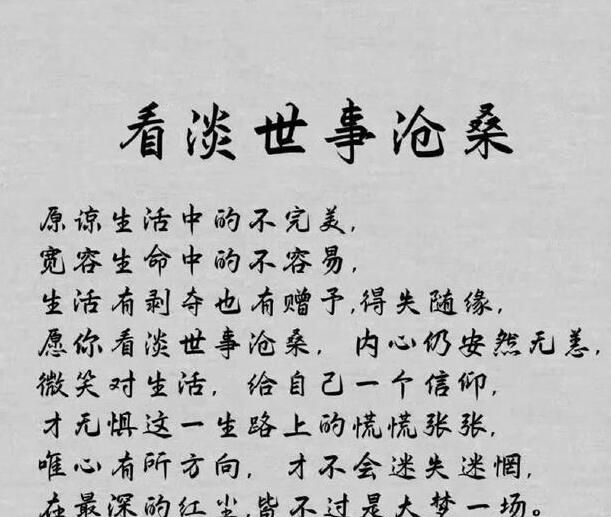 看淡世事沧桑
原谅生活中的不完美,
宽容生命中的不容易,
生活有剥夺也有赠予,得失随缘,
愿你看淡世事沧桑, 内心仍安然无恙,
微笑对生活, 给自己一个信仰,
才无惧这一生路上的慌慌张张,
唯心有所方向, 才不会迷失迷惘,
在最深的红尘,皆不过是大梦一场。